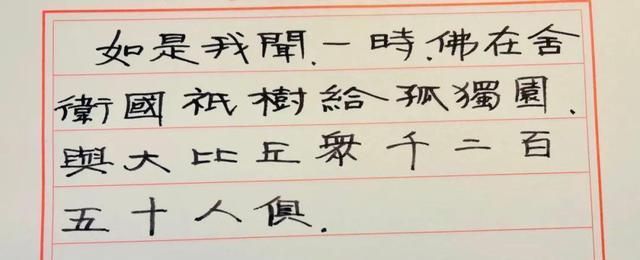 如是我聞.一時.佛在舍
衛國祇樹給孤獨園.
與大比丘眾千二百
五十人俱.